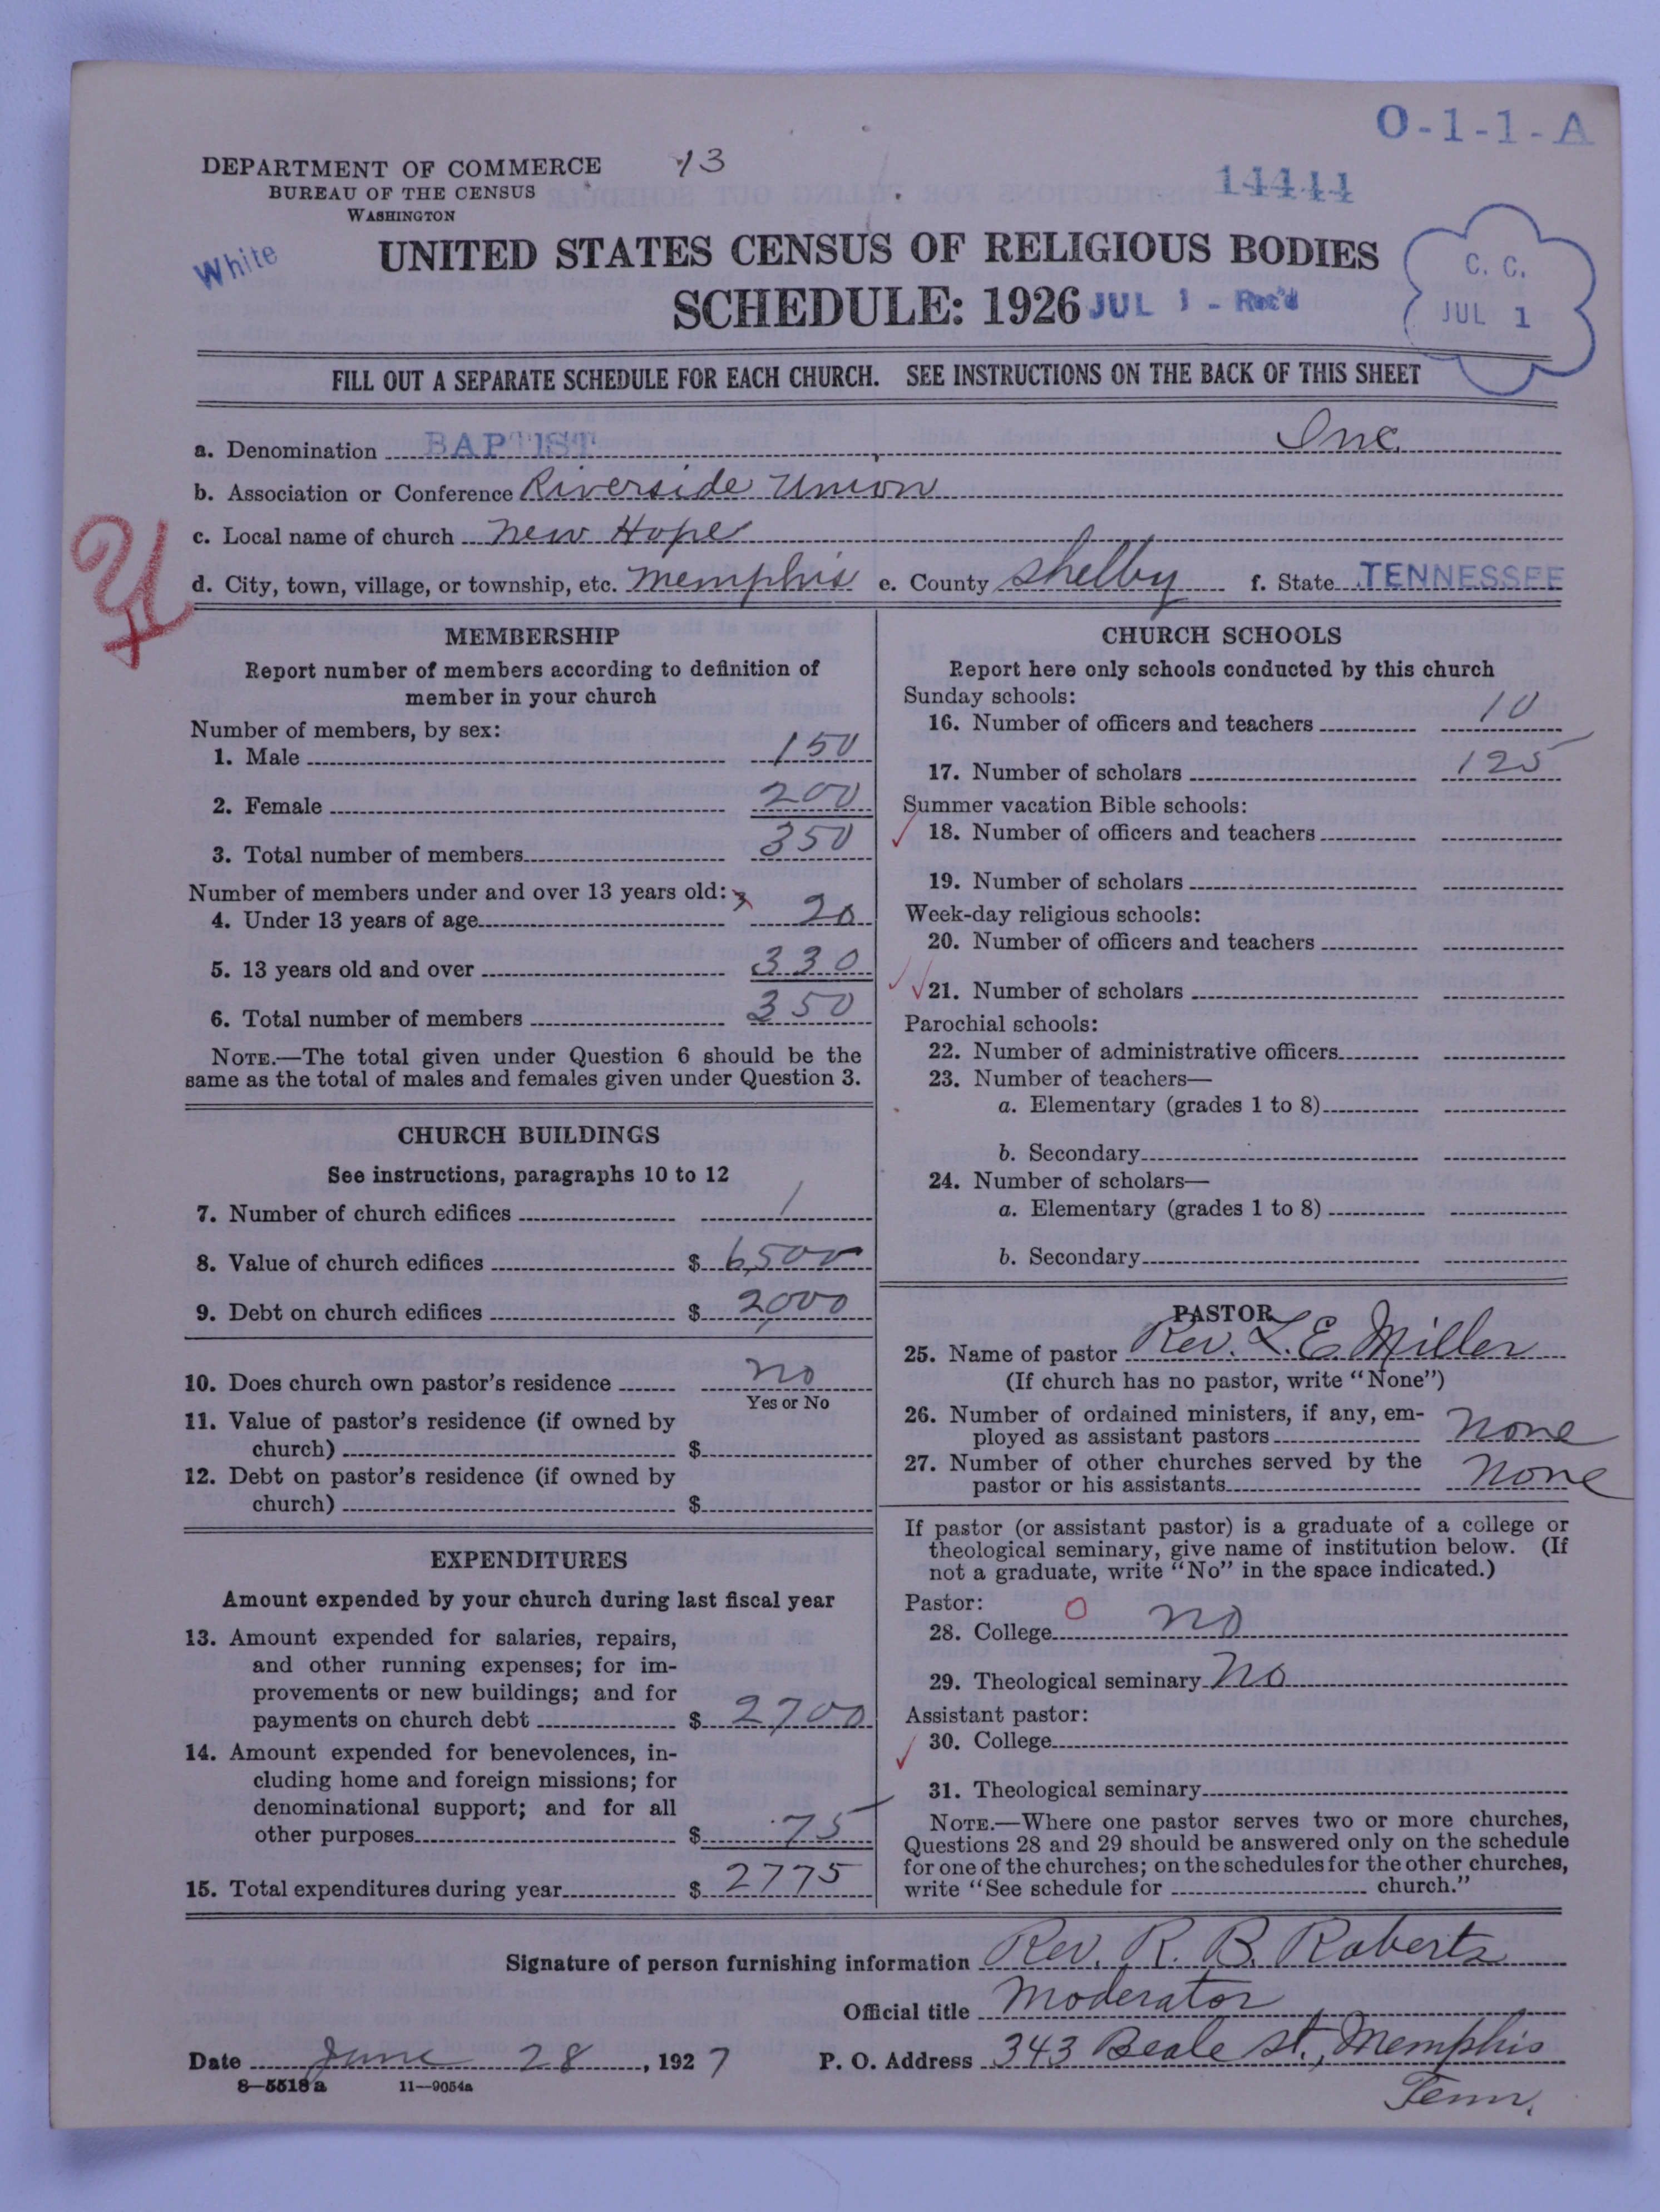 O-1-1-A
DEPARTMENT OF COMMERCE
BUREAU OF THE CENSUS
WASHINGTON
13
14411
White
UNITED STATES CENSUS OF RELIGIOUS BODIES
SCHEDULE: 1926
JUL 1 - Rec'd
C. C.
JUL 1
FILL OUT A SEPARATE SCHEDULE FOR EACH CHURCH. SEE INSTRUCTIONS ON THE BACK OF THIS SHEET
a. Denomination BAPTIST Inc.
b. Association or Conference Riverside Union
c. Local name of church New Hope
d. City, town, village, or township, etc. Memphis e. County Shelby f. State TENNESSEE
MEMBERSHIP
Report number of members according to definition of
member in your church
Number of members, by sex:
1. Male 150
2. Female 200
3. Total number of members 350
Number of members under and over 13 years old:
4. Under 13 years of age 20
5. 13 years old and over 330
6. Total number of members 350
NOTE.—The total given under Question 6 should be the
same as the total of males and females given under Question 3.
CHURCH BUILDINGS
See instructions, paragraphs 10 to 12
7. Number of church edifices 1
8. Value of church edifices $ 6,500
9. Debt on church edifices $ 2,000
10. Does church own pastor's residence no
Yes or No
11. Value of pastor's residence (if owned by
church) $
12. Debt on pastor's residence (if owned by
church) $
EXPENDITURES
Amount expended by your church during last fiscal year
13. Amount expended for salaries, repairs,
and other running expenses; for im-
provements or new buildings; and for
payments on church debt $ 2700
14. Amount expended for benevolences, in-
cluding home and foreign missions; for
denominational support; and for all
other purposes $ 75
15. Total expenditures during year $ 2775
CHURCH SCHOOLS
Report here only schools conducted by this church
Sunday schools:
16. Number of officers and teachers 10
17. Number of scholars 125
Summer vacation Bible schools:
18. Number of officers and teachers
19. Number of scholars
Week-day religious schools:
20. Number of officers and teachers
21. Number of scholars
Parochial schools:
22. Number of administrative officers
23. Number of teachers—
a. Elementary (grades 1 to 8)
b. Secondary
24. Number of scholars—
a. Elementary (grades 1 to 8)
b. Secondary
PASTOR
25. Name of pastor Rev. L. E. Miller
(If church has no pastor, write "None")
26. Number of ordained ministers, if any, em-
ployed as assistant pastors none
27. Number of other churches served by the
pastor or his assistants none
If pastor (or assistant pastor) is a graduate of a college or
theological seminary, give name of institution below. (If
not a graduate, write "No" in the space indicated.)
Pastor: O
28. College no
29. Theological seminary no
Assistant pastor:
30. College
31. Theological seminary
NOTE.—Where one pastor serves two or more churches,
Questions 28 and 29 should be answered only on the schedule
for one of the churches; on the schedules for the other churches,
write "See schedule for church."
Signature of person furnishing information Rev. R. B. Roberts
Official title Moderator
Date June 28, 1927 P. O. Address 343 Beale st., Memphis
Tenn.
8—5518a 11—9054a